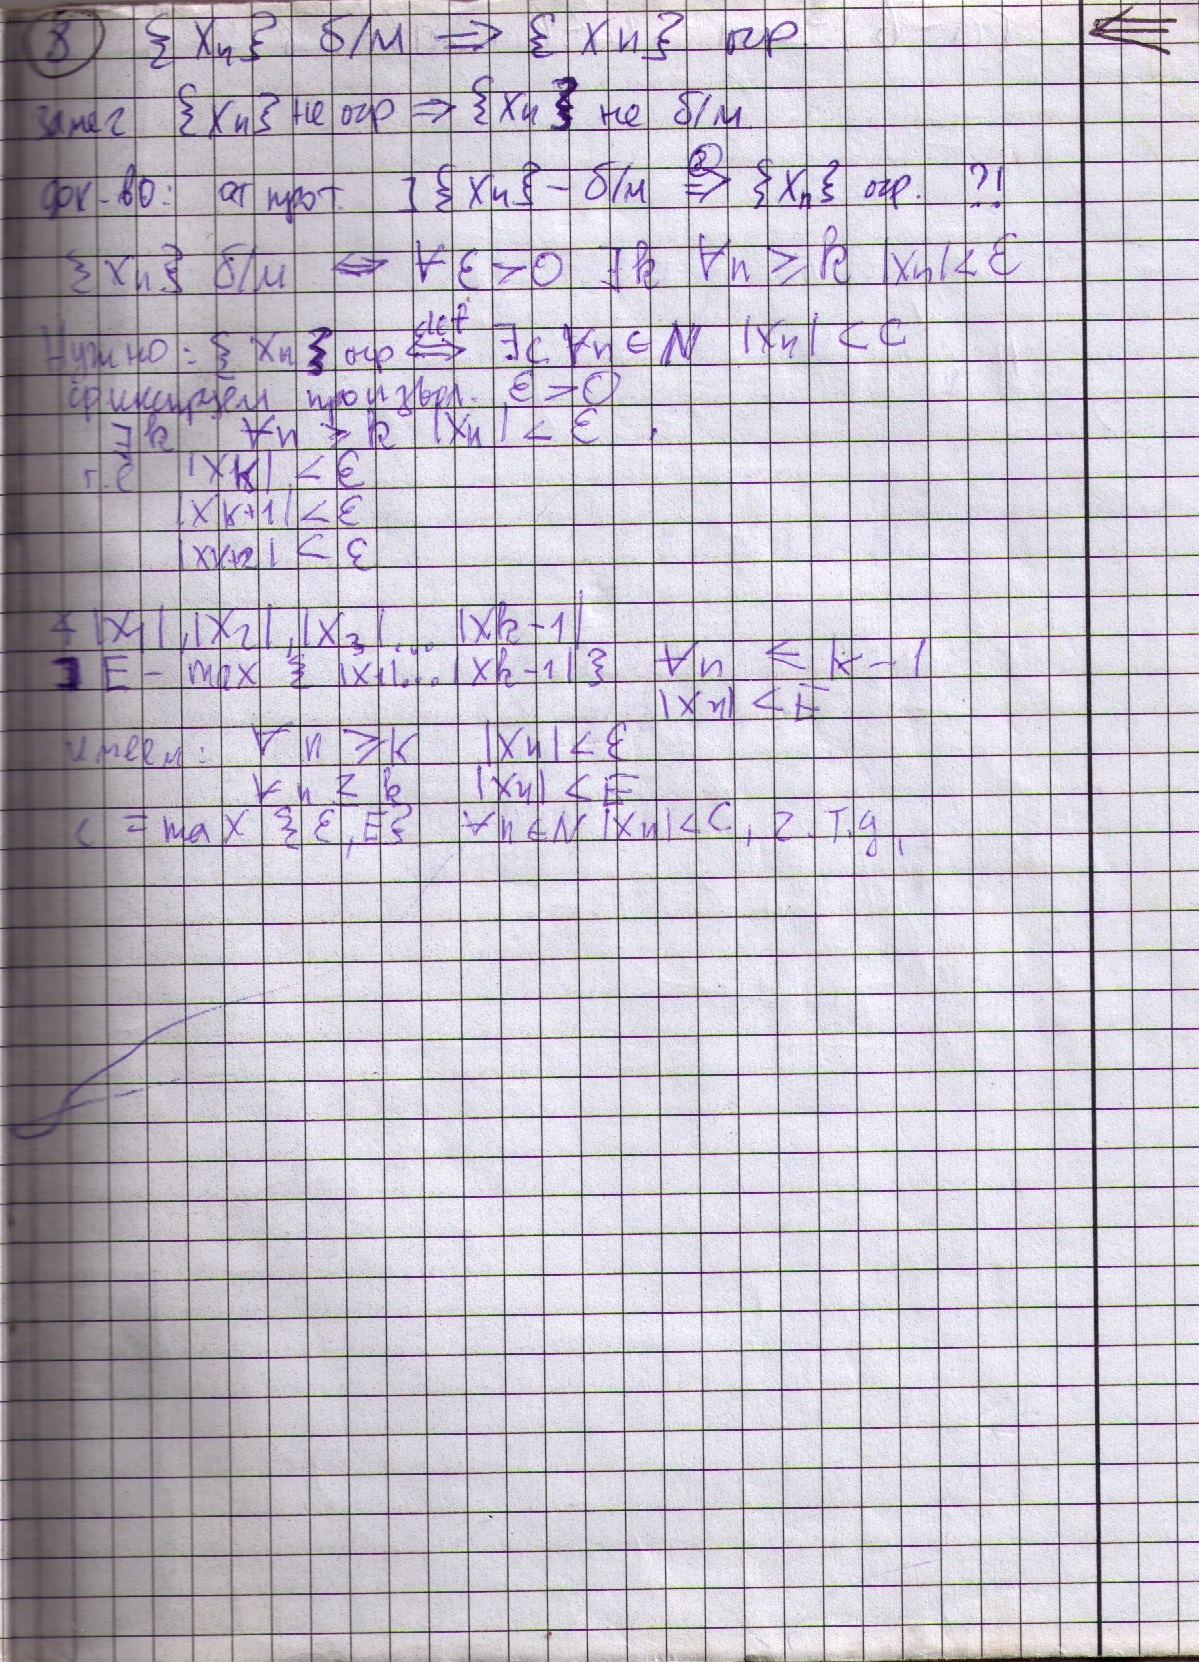 8 {Xn} б/м ⇒ {Xn} огр
замеч {Xn} не огр ⇒ {Xn} не б/м
док-во: от прот. ] {Xn} - б/м ⇒ {Xn} огр. ?!
{Xn} б/м ⇔ ∀ε>0 ∃k ∀n ≥ k |Xn|<ε
Нужно: {Xn} огр ⇔ def ∃C ∀n∈N |Xn|<C
фиксируем произвол. ε>0
∃k ∀n ≥ k |Xn|<ε .
т.е |Xk|<ε
|Xk+1|<ε
|Xk+2|<ε
|X1|,|X2|,|X3|... |Xk-1|
] E - max {|X1|...|Xk-1|} ∀n ≤ k-1
|Xn|<E
имеем: ∀n ≥ k |Xn|<ε
∀n ≥ k |Xn|<E
C = max {ε,E} ∀n∈N |Xn|<C, ч.т.д.